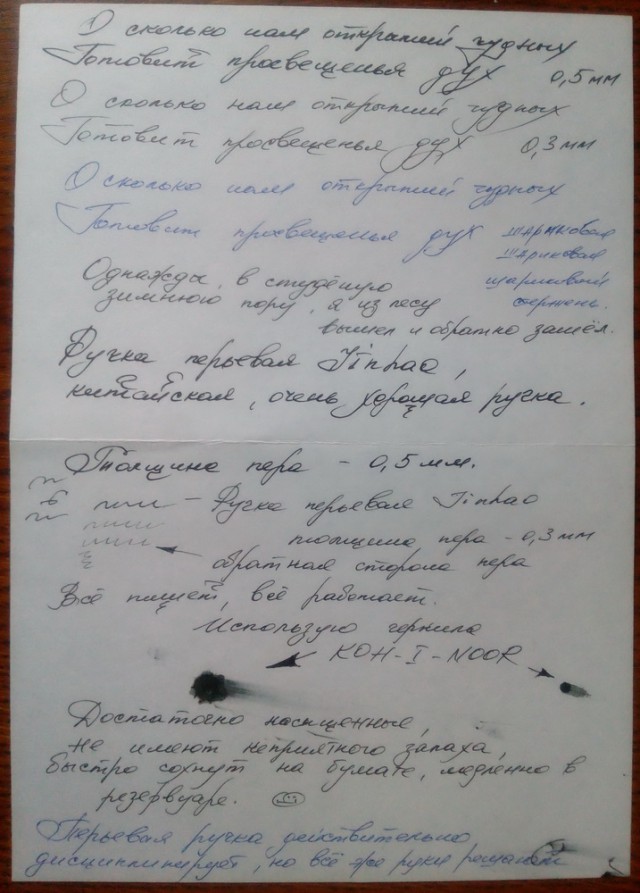 О сколько нам открытий чудных
Готовит просвещенья дух 0,5 мм
О сколько нам открытий чудных
Готовит просвещенья дух 0,3 мм
О сколько нам открытий чудных
Готовит просвещенья дух шариковая
шариковая
Однажды, в студёную шариковый
зимнюю пору, я из лесу стержень.
вышел и обратно зашёл.
Ручка перьевая Jinhao,
китайская, очень хорошая ручка.
Толщина пера – 0,5 мм.
– Ручка перьевая Jinhao
толщина пера – 0,3 мм
обратная сторона пера
Всё пишет, всё работает.
Использую чернила
KOH-I-NOOR
Достаточно насыщенные,
не имеют неприятного запаха,
быстро сохнут на бумаге, медленно в
резервуаре.
Перьевая ручка действительно
дисциплинирует, но всё же руки решают